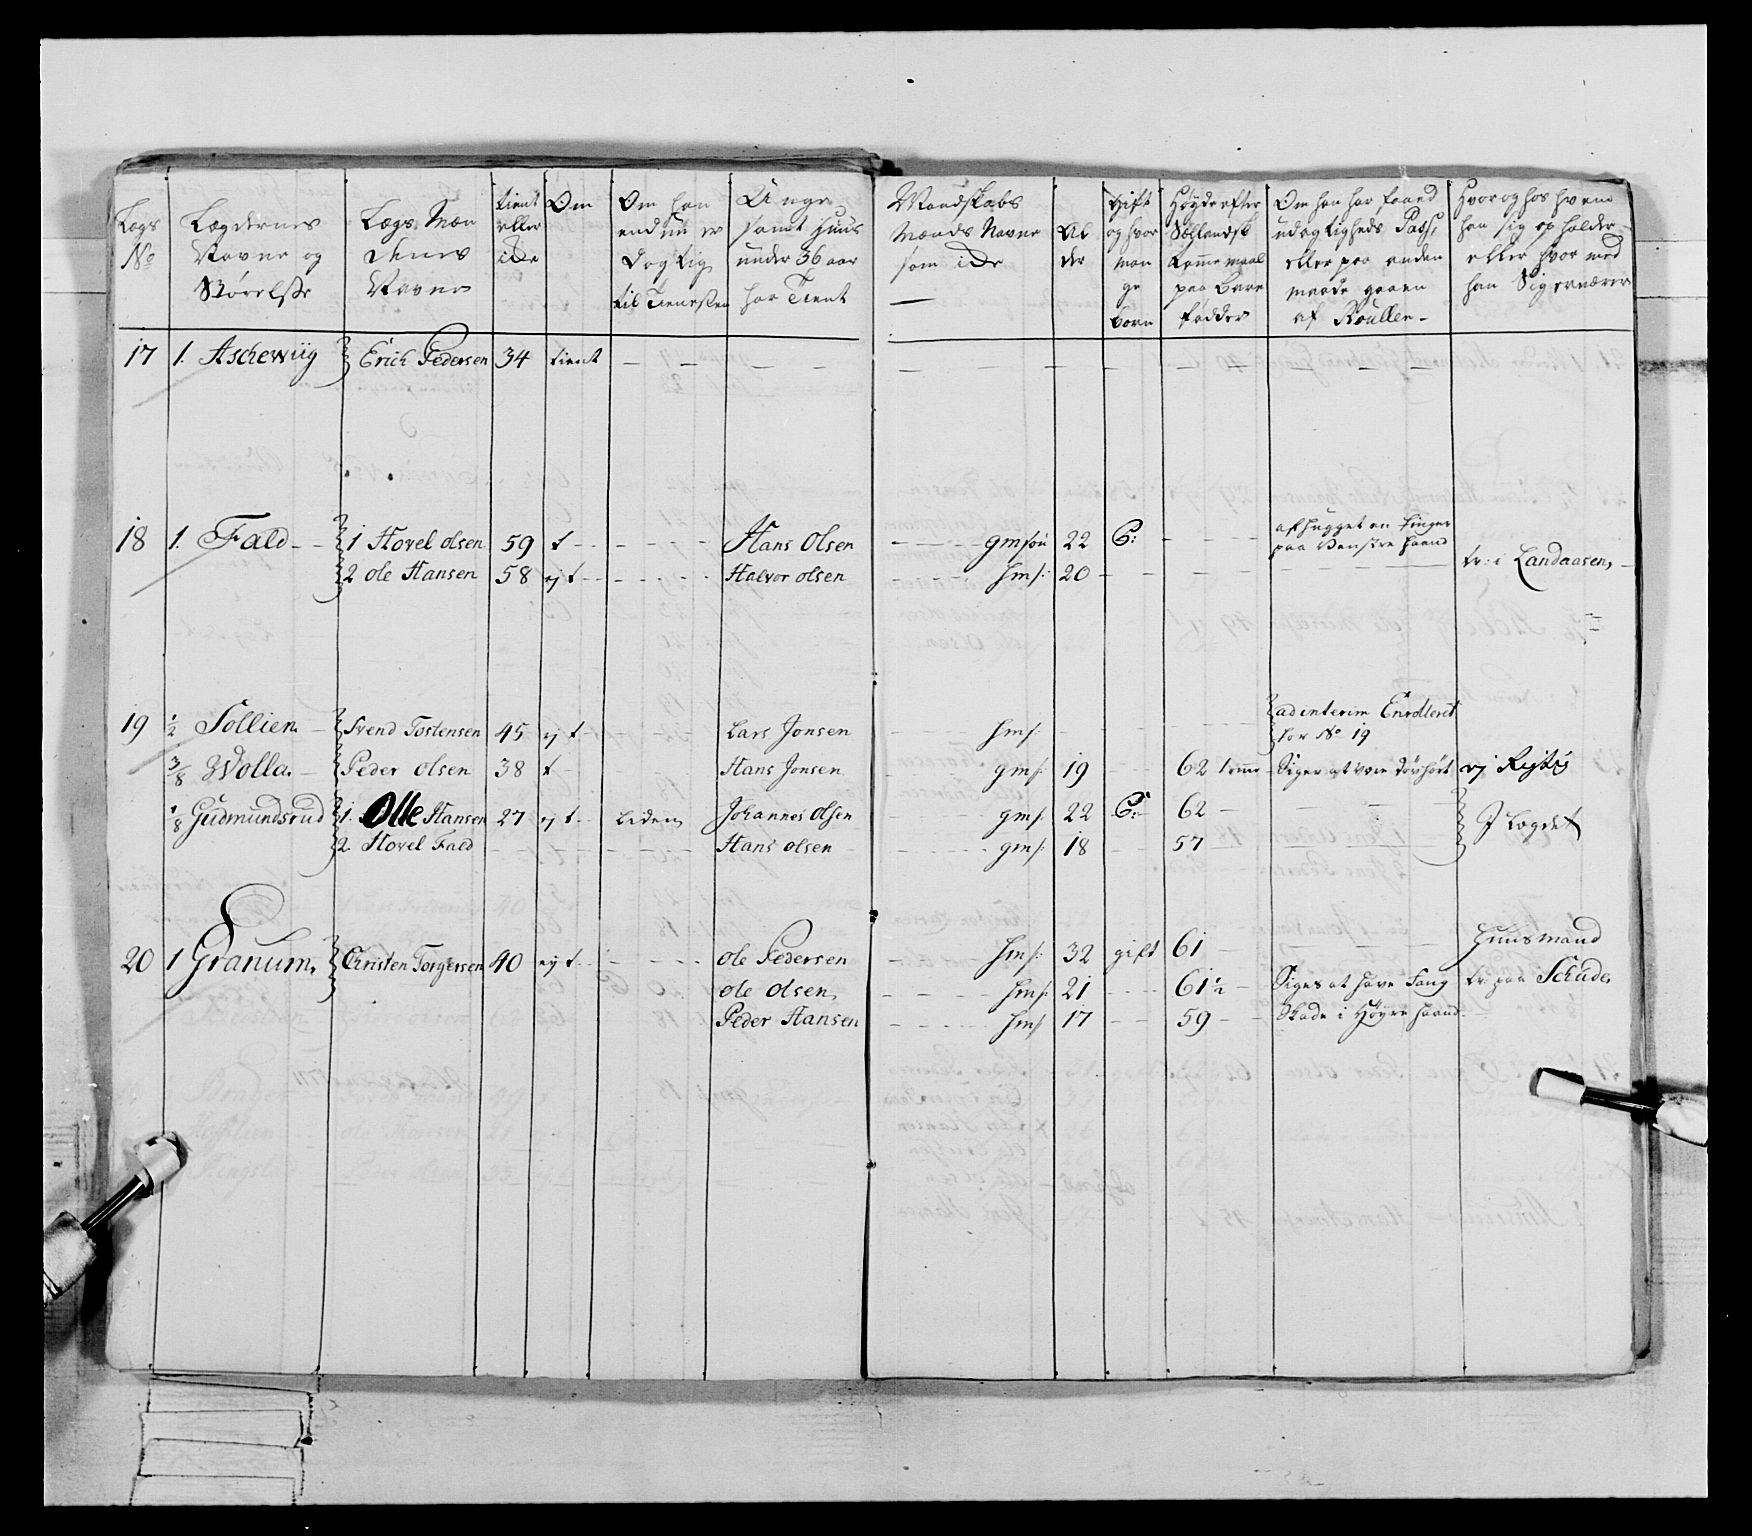 Lægs No
Lægdernes Navne og Størelsse
Lægs Mændenes Navne
tient eller icke
Om
Om han endnu er Dygtig til Tienesten
Unge samt huus under 36 aar har Tient
Mandskabs Mænds Navne som icke
Alder
Gift og hvor mange børn
Høyde efter Siællandsk komme maal paa bare fødder
Om han har faaed udygtigheds Pass, eller paa anden maade gaaen af Roullen
Hvor og hos hvem han sig opholder eller hvor med han Sig ernærer
17 1. Aschewiig Erich Pedersen 34 tient
18 1. Fald 1 Hovel olsen 59 t Hans Olsen gmsøn 22 G: afhugget en finger paa venstre haand
2 ole Hansen 58 ej t Halvor olsen hms: 20 tr: i Landaasen,
19 1/2 Sollien Svend Tostensen 45 ej t Lars Jonsen hms: ad interim Enrolleret for No 19
3/8 Wolla. Peder olsen 38 t Hans Jonsen gms: 19 62 Siger at være døvhørt ej Rigtig
1/8 Gudmundsrud 1. Olle Hansen 27 ej t liden Johannes olsen gms: 22 G: 62 I Lægdet
2. Hovel Fald Hans olsen gms: 18 57
20 1 Granum, Christen Torgersen 40 ej t ole Pedersen hms: 32 gift 61 Huusmand
ole olsen, hms: 21 61 1/2 Siges at have faaet tr: paa Schude,
Peder Hansen hms 17 59 Skade i Høyre haand